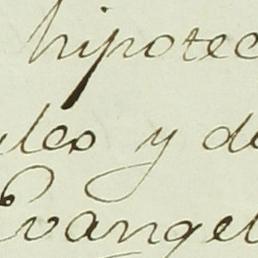 hipotec
les y de
Evangel